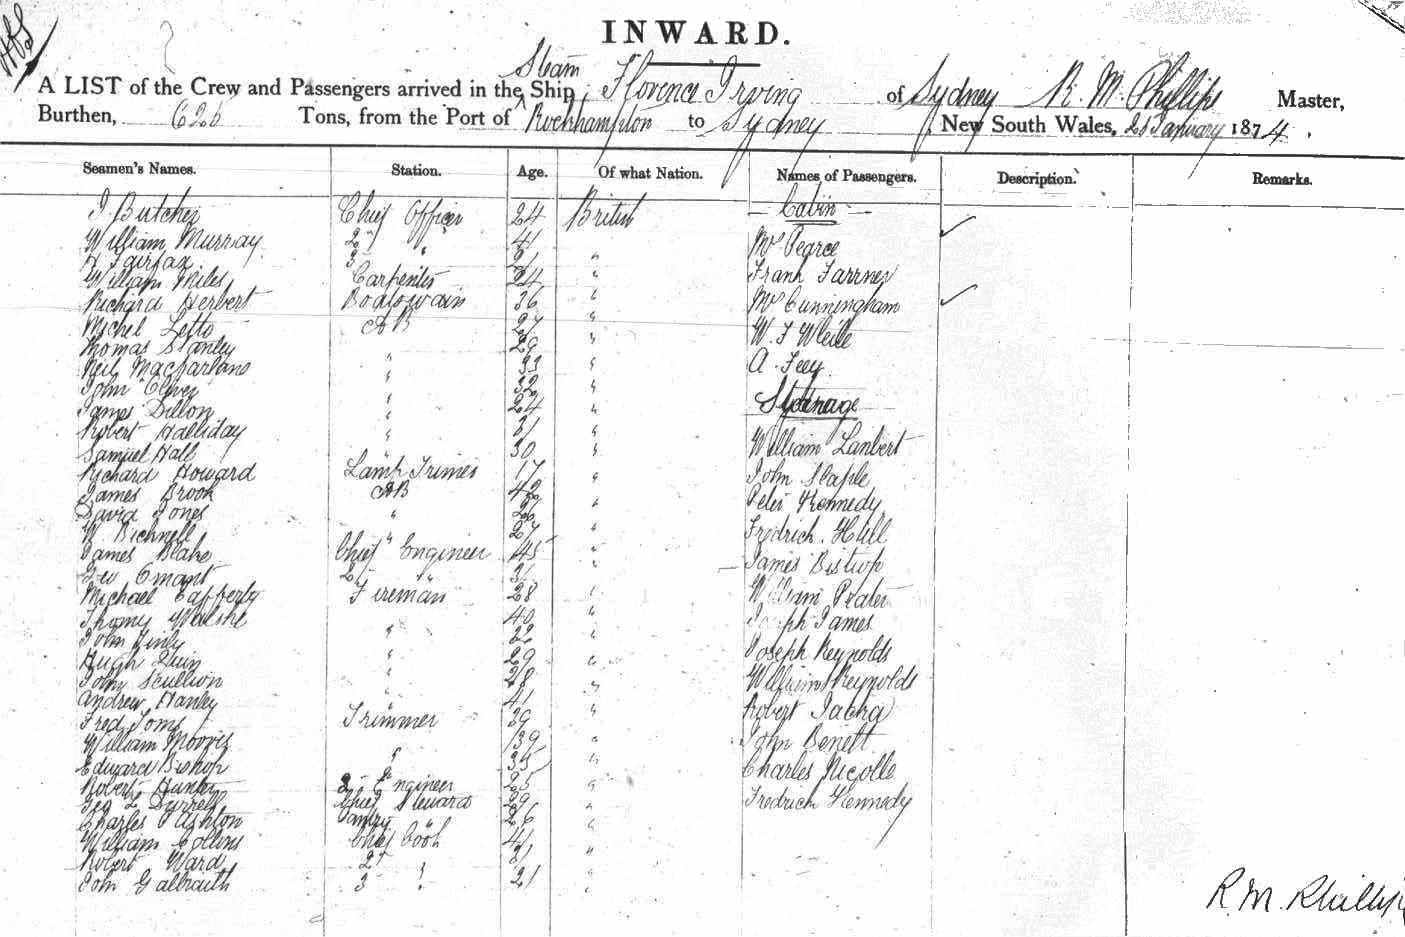 INWARD.
A LIST of the Crew and Passengers arrived in the Steam Ship Florence Irving of Sydney R. M. Phillips Master,
Burthen, Tons, from the Port of Rockhampton to Sydney New South Wales, January 1874.
Seamen's Names. Station. Age. Of what Nation. Names of Passengers. Description. Remarks.
J. Butcher Chief Officer 24 British Cabin
William Murray 2 " 41 Mrs Pearce
H Fairfax 3 " 21 " Frank Farrner
William Miles Carpenter 24 "
Richard Herbert Boatswain 36 " Mrs Cunningham
Michel Letto AB 27 "
Thomas Stanley 29 " W. F
Neil Macfarlane " 33 " A.
John Oliver " 32 "
James Dillon " 24 " Steerage
Robert Halliday " 31 "
Samuel Hall " 30 " William Lanbert
Richard Howard Lamp Trimer 17 " John Staple
James Brook AB 42 " Peter Kennedy
David Jones " "
W. Bicknell " 27 " Fredrich Hull
James Blake Chief Engineer 45 " James Bishop
Geo 2 " 31 "
Michael Cafferty Fireman 28 " William
Thomas Walshe 40 " Joseph James
John Finly " 22 "
Hugh Quin " 29 " Joseph Reynolds
John Scullion " 28 " William Reynolds
Andrew Hanley " 41 "
Fred Toms Trimmer 39 " Robert
William 39 " John Benett
Edward Bishop " 35 " Charles Nicolle
Robert Hunter 3 Engineer 25 "
Geo L Durrell Chief Steward 29 " Fredrich Kennedy
Charles Ashton Pantry " 26 "
William Collins Chief Cook 41
Robert Ward 2 " 21 "
John Galbraith 3 " 21 "
R. M. Phillips